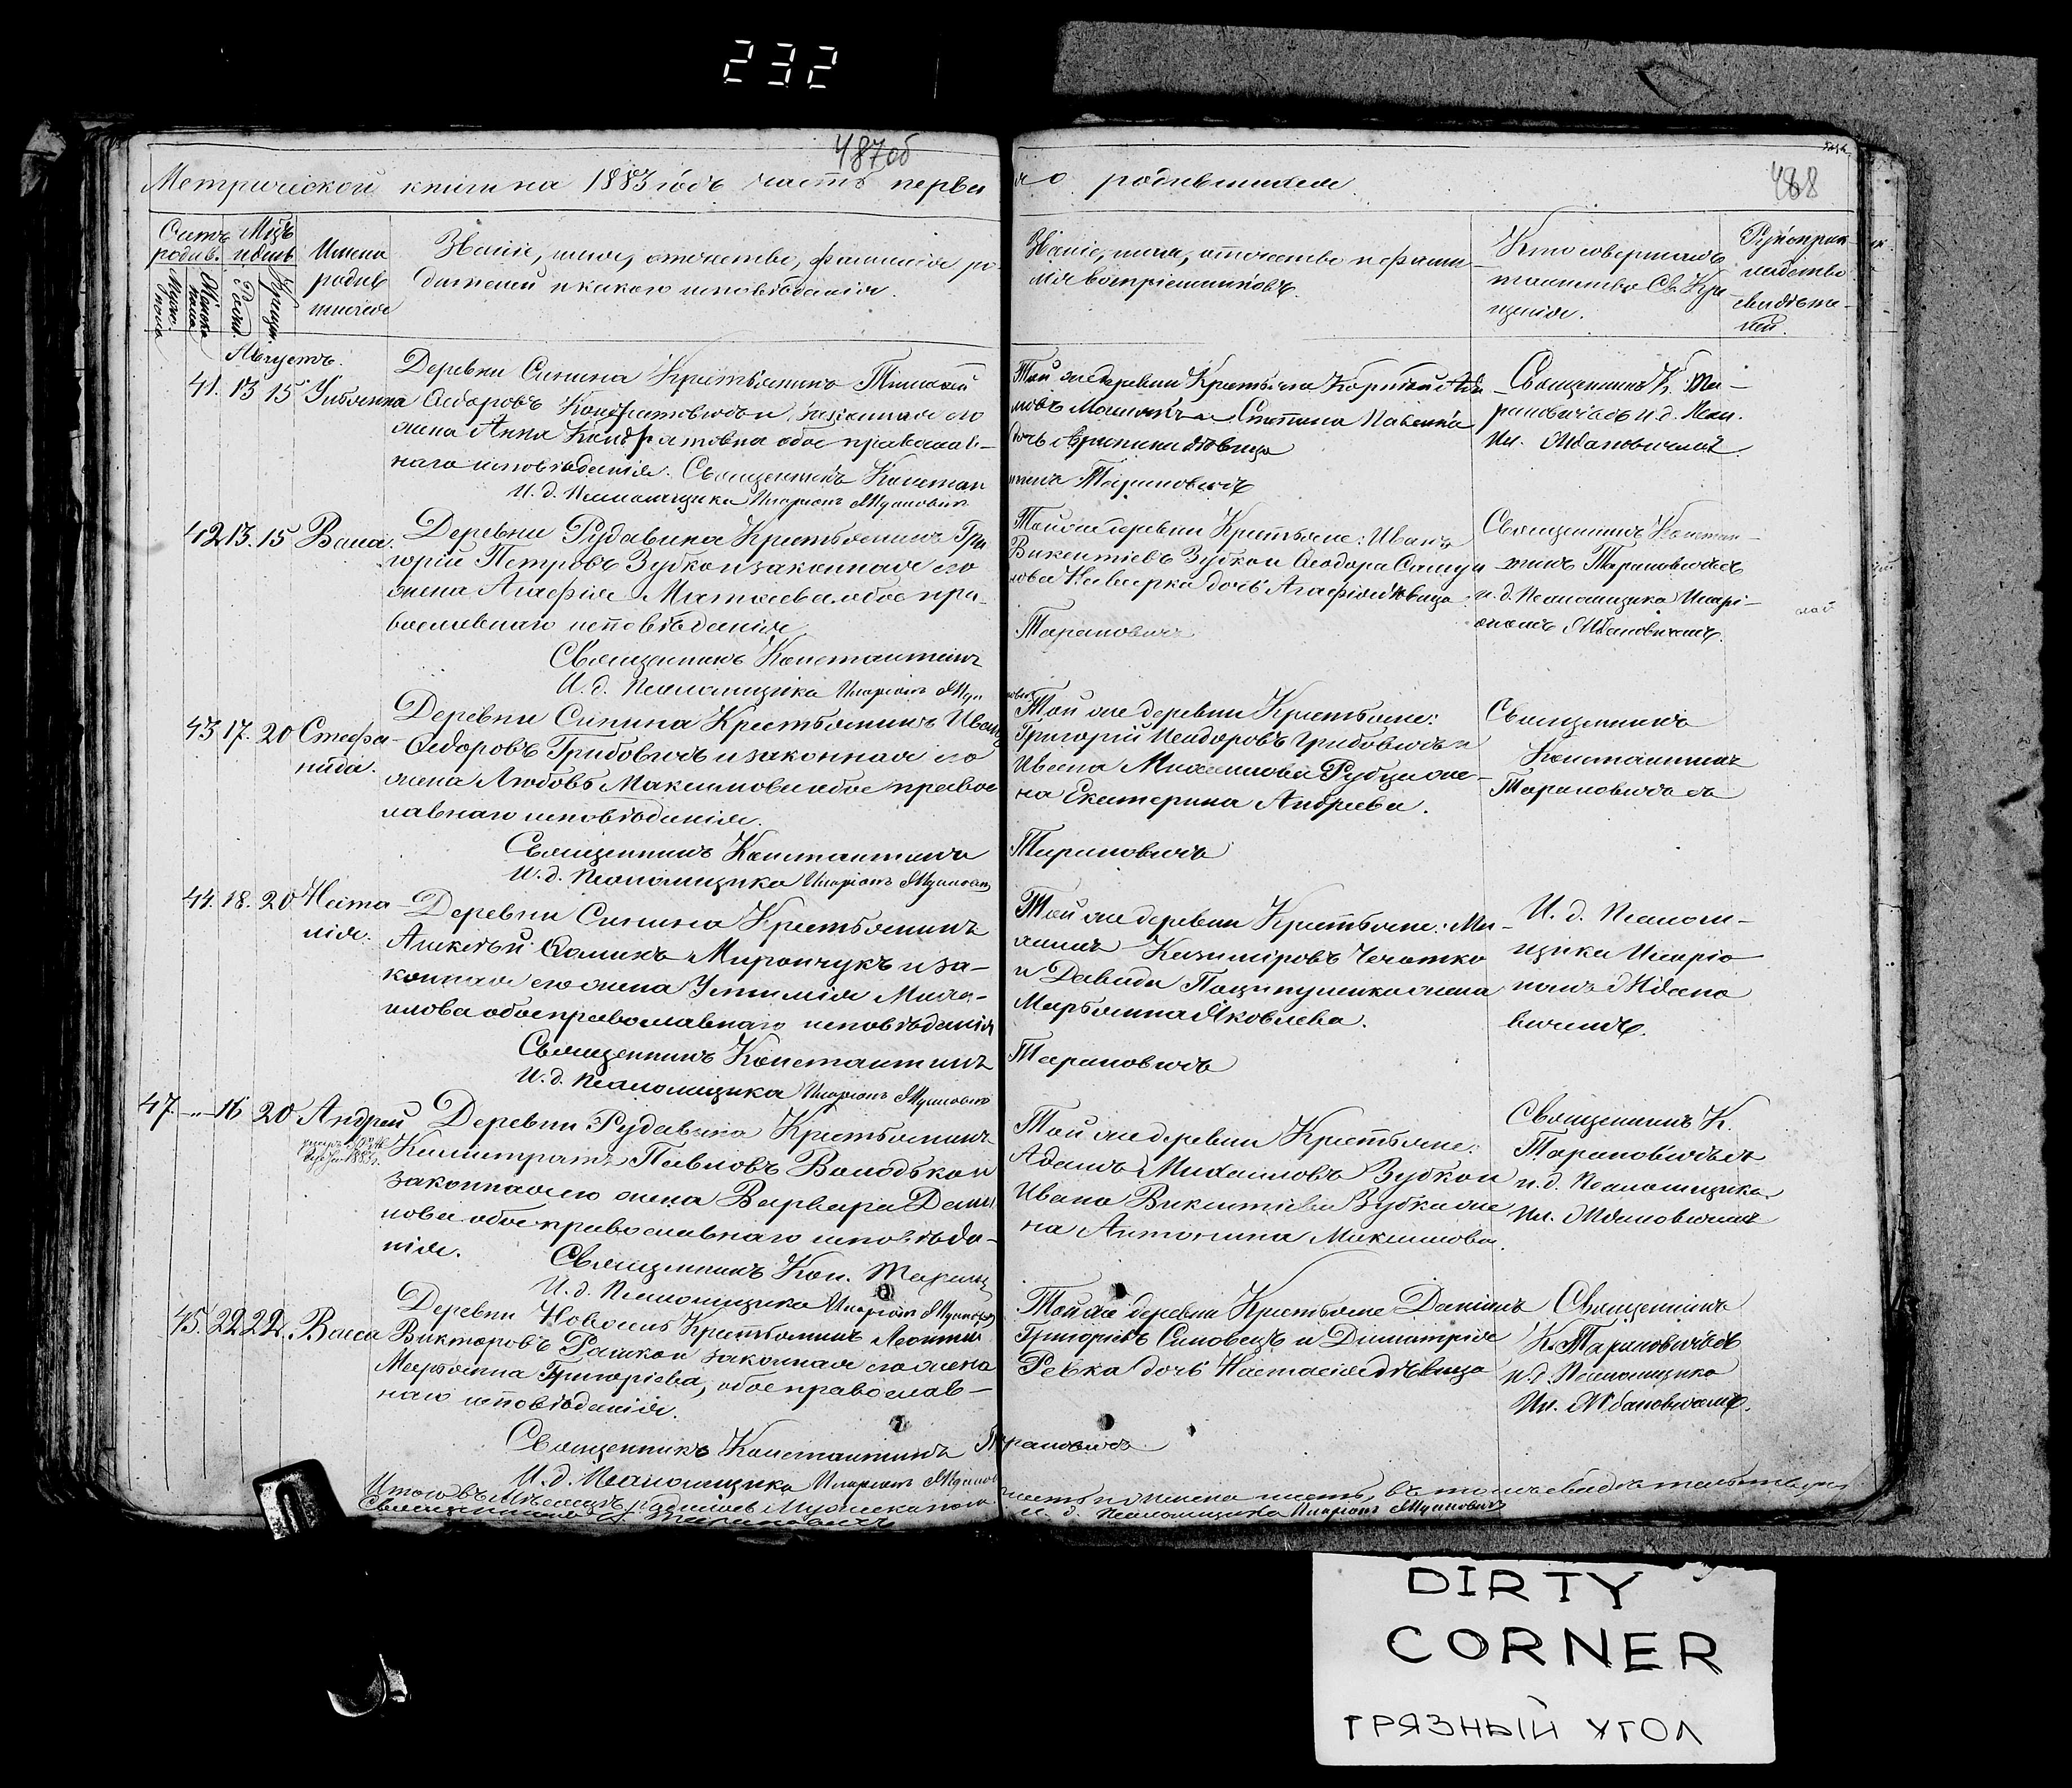 232
487об
488
Метрической книги на 1883 годъ часть первая о родившихся
Счетъ родив.
Мужс. пола
Женска пола
Мѣцъ и день
Рожд.
Крещ.
Имена родив шихся
Званіе, имя, отчество, фамилія ро-
дителей и какого исповѣданія.
Званіе, имя, отчество и фами-
лія воспріемниковъ.
Кто совершалъ
таинство Св. Кре
щенія.
Рукоприк-
ладство
свидѣте-
лей.
Августъ.
41. 13 15 Ульянна
Деревни Синина Крестьянинъ Тимофей
Ѳедоровъ и законная его
жена Анна Кондратовна обое православ-
наго исповѣданія. Священникъ Констан
тинъ Тарановичъ
И. д. Псаломщика Иларіонъ Ждановичъ
Той же деревни Крестьяне
дочь дѣвица
Священникъ К. Та-
рановичъ съ и. д. Псал.
Ил. Ждановичемъ.
42. 13. 15 Васса.
Деревни Рудавина Крестьянинъ Гри
горій Петровъ Зубко и законная его
жена Агафія Матѳева обое пра-
вославнаго исповѣданія
Священникъ Константинъ
Тарановичъ
И. д. Псаломщика Иларіонъ Жда
новичъ
Той же деревни Крестьяне: Иванъ
Викентіевъ Зубко и Ѳеодора Саму
лова дочь Агафія дѣвица.
Священникъ Констан-
тинъ Тарановичъ съ
и. д. Псаломщика Иларі-
ономъ Ждановичемъ.
43 17. 20 Стефа-
нида.
Деревни Синина Крестьянинъ Иванъ
Ѳедоровъ Грибовичъ и законная его
жена Любовь Максимова обое правос
лавнаго исповѣданія.
Священникъ Константинъ
Тарановичъ
И. д. Псаломщика Иларіонъ Жданович
Той же деревни Крестьяне:
Григорій Исидоровъ Грибовичъ и
Ивана Михаилова Рубца же-
на Екатерина Андреева.
Священникъ
Константинъ
Тарановичъ съ
44. 18. 20 Ната
лія.
Деревни Синина Крестьянинъ
Алексѣй Ѳоминъ Мирончукъ и за-
конная его жена Устимія Миха-
илова обое православнаго исповѣданія
Священникъ Константинъ
Тарановичъ
И. д. Псаломщика Иларіонъ Жданович
Той же деревни Крестьяне:
Казиміровъ Чечотко
и Давида жена
Марьянна Яковлева.
И. д. Псалом-
щика Иларіо
номъ Ждано
вичемъ.
47. - " - 16 20 Андрей
1883г.
Деревни Рудавина Крестьянинъ
Калистратъ Павловъ Володько и
законная его жена Варвара Дани
лова обое православнаго исповѣда-
нія.
Священникъ Кон. Таран
И. д. Псаломщика Иларіонъ Жданович
Той же деревни Крестьяне:
Адамъ Михаиловъ Зубко и
Ивана Викентіева Зубка же
на Антонина Максимова.
Священникъ К.
Тарановичъ съ
и. д. Псаломщика
Ил. Ждановичемъ
45. 22 22. Васса
Деревни Новосель Крестьянинъ Леонтій
Викторовъ Рашко и законная его жена
Марьянна Григоріева, обое православ-
наго исповѣданія.
Священникъ Константинъ Тарановичъ
И. д. Псаломщика Иларіонъ Жданов
Той же деревни Крестьяне Даніилъ
Григоріевъ Симовецъ и Димитрія
Ревка дочь Настасія дѣвица
Священникъ
К. Тарановичъ съ
и. д. Псаломщика
Ил. Ждановичемъ.
Итого въ Мѣсяцѣ Августѣ Мужеска пола
шесть, въ томъ свидѣтельствуемъ
Священникъ К. Тарановичъ
и. д. Псаломщика Иларіонъ Ждановичъ
DIRTY
CORNER
ГРЯЗНЫЙ УГОЛ